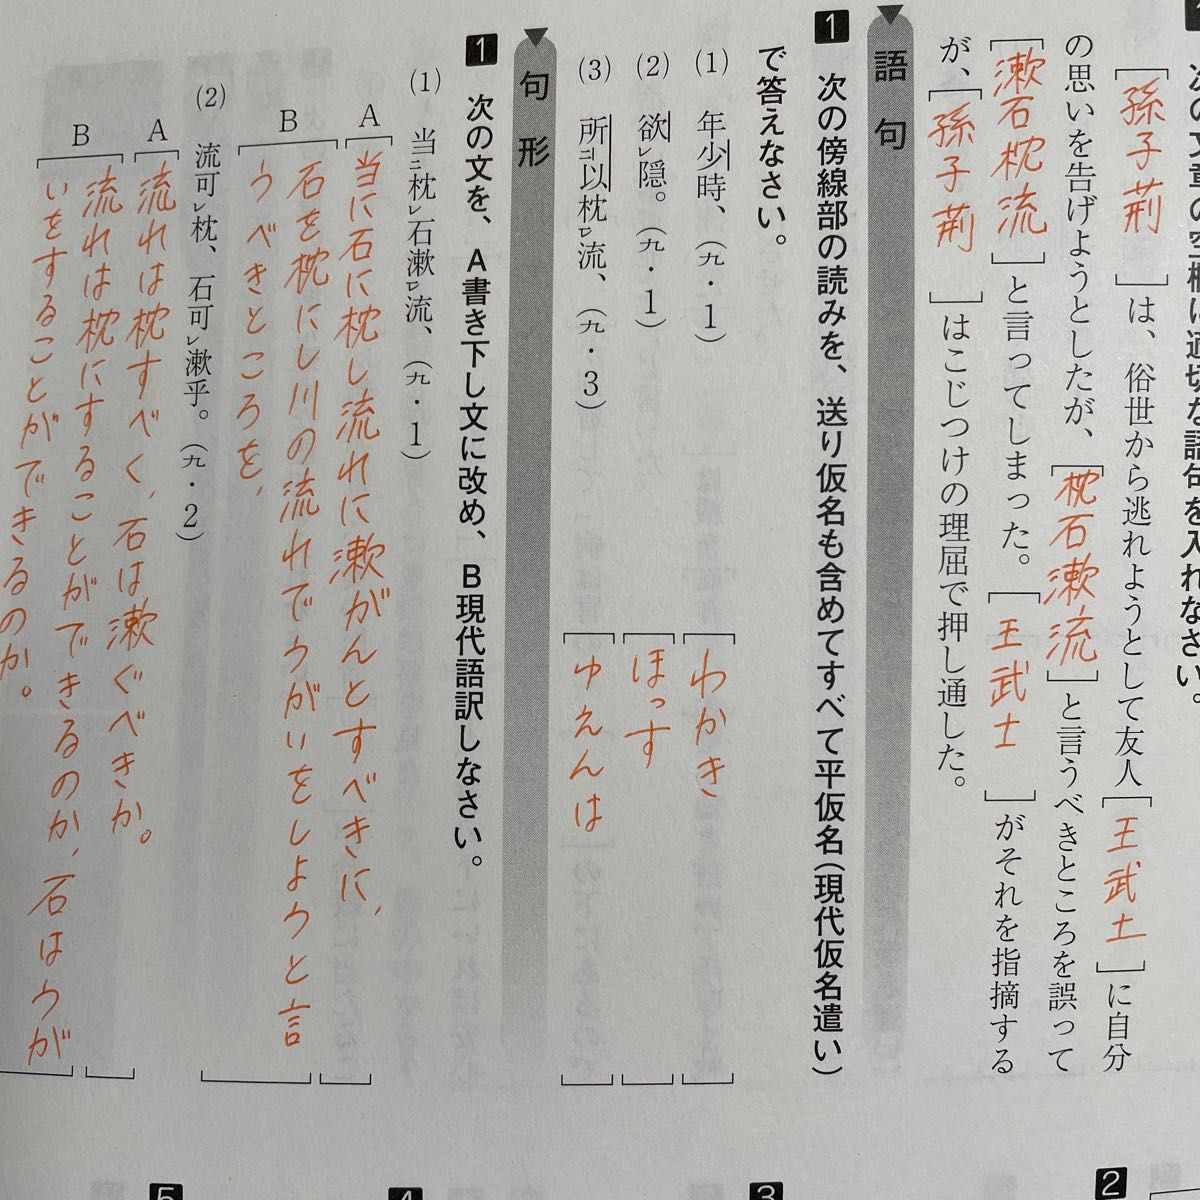 次の文章の空欄に適切な語句を入れなさい。
[孫子荊]は、俗世から逃れようとして友人[王武士]に自分
の思いを告げようとしたが、[枕石漱流]と言うべきところを誤って
[漱石枕流]と言ってしまった。[王武士]がそれを指摘する
が、[孫子荊]はこじつけの理屈で押し通した。
語句
1 次の傍線部の読みを、送り仮名も含めてすべて平仮名(現代仮名遣い)
で答えなさい。
(1) 年少時、(九・1) [わかき]
(2) 欲レ隠。(九・1) [ほっす]
(3) 所ニ以枕レ流、(九・3) [ゆえんは]
句形
1 次の文を、A書き下し文に改め、B現代語訳しなさい。
(1) 当ニ枕レ石漱レ流、(九・1)
A [当に石に枕し流れに漱がんとすべきに、]
B [石を枕にし川の流れでうがいをしようと言
うべきところを、]
(2) 流可レ枕、石可レ漱乎。(九・2)
A [流れは枕すべく、石は漱ぐべきか。]
B [流れは枕にすることができるのか、石はうが
いをすることができるのか。]
2
3
4
5